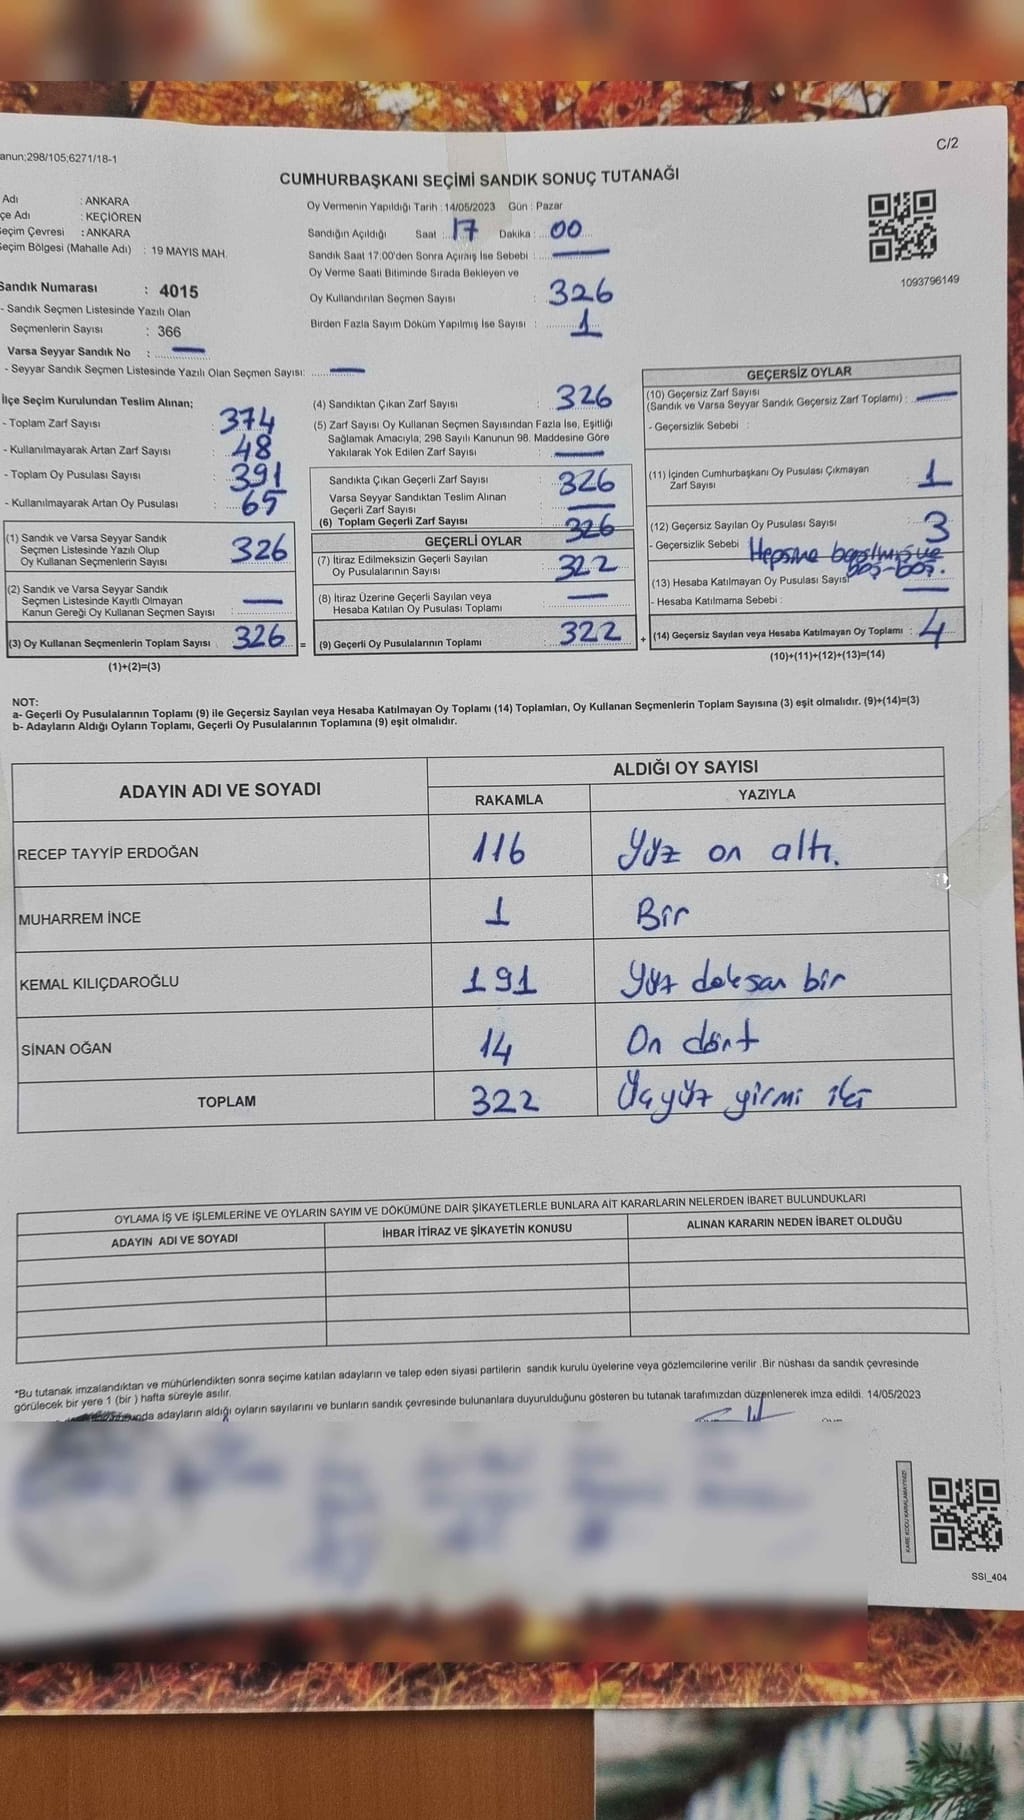 anun;298/105;6271/18-1
C/2
CUMHURBAŞKANI SEÇİMİ SANDIK SONUÇ TUTANAĞI
Adı : ANKARA
çe Adı : KEÇİÖREN
eçim Çevresi : ANKARA
eçim Bölgesi (Mahalle Adı) : 19 MAYIS MAH.
Sandık Numarası : 4015
- Sandık Seçmen Listesinde Yazılı Olan
Seçmenlerin Sayısı : 366
Varsa Seyyar Sandık No :
- Seyyar Sandık Seçmen Listesinde Yazılı Olan Seçmen Sayısı:
Oy Vermenin Yapıldığı Tarih : 14/05/2023 Gün : Pazar
Sandığın Açıldığı Saat : 17 Dakika : 00
Sandık Saat 17:00'den Sonra Açılmış İse Sebebi :
Oy Verme Saati Bitiminde Sırada Bekleyen ve
Oy Kullandırılan Seçmen Sayısı : 326
Birden Fazla Sayım Döküm Yapılmış İse Sayısı : 1
1093796149
İlçe Seçim Kurulundan Teslim Alınan;
- Toplam Zarf Sayısı : 374
- Kullanılmayarak Artan Zarf Sayısı : 48
- Toplam Oy Pusulası Sayısı : 391
- Kullanılmayarak Artan Oy Pusulası : 65
(1) Sandık ve Varsa Seyyar Sandık
Seçmen Listesinde Yazılı Olup
Oy Kullanan Seçmenlerin Sayısı : 326
(2) Sandık ve Varsa Seyyar Sandık
Seçmen Listesinde Kayıtlı Olmayan
Kanun Gereği Oy Kullanan Seçmen Sayısı :
(3) Oy Kullanan Seçmenlerin Toplam Sayısı : 326 =
(1)+(2)=(3)
(4) Sandıktan Çıkan Zarf Sayısı : 326
(5) Zarf Sayısı Oy Kullanan Seçmen Sayısından Fazla İse, Eşitliği
Sağlamak Amacıyla; 298 Sayılı Kanunun 98. Maddesine Göre
Yakılarak Yok Edilen Zarf Sayısı :
Sandıkta Çıkan Geçerli Zarf Sayısı : 326
Varsa Seyyar Sandıktan Teslim Alınan
Geçerli Zarf Sayısı :
(6) Toplam Geçerli Zarf Sayısı 326
GEÇERLİ OYLAR
(7) İtiraz Edilmeksizin Geçerli Sayılan
Oy Pusulalarının Sayısı : 322
(8) İtiraz Üzerine Geçerli Sayılan veya
Hesaba Katılan Oy Pusulası Toplamı :
(9) Geçerli Oy Pusulalarının Toplamı : 322 +
GEÇERSİZ OYLAR
(10) Geçersiz Zarf Sayısı
(Sandık ve Varsa Seyyar Sandık Geçersiz Zarf Toplamı) :
- Geçersizlik Sebebi :
(11) İçinden Cumhurbaşkanı Oy Pusulası Çıkmayan
Zarf Sayısı : 1
(12) Geçersiz Sayılan Oy Pusulası Sayısı : 3
- Geçersizlik Sebebi Hepsine basılmış ve
boş-boş.
(13) Hesaba Katılmayan Oy Pusulası Sayısı
- Hesaba Katılmama Sebebi :
(14) Geçersiz Sayılan veya Hesaba Katılmayan Oy Toplamı : 4
(10)+(11)+(12)+(13)=(14)
NOT:
a- Geçerli Oy Pusulalarının Toplamı (9) ile Geçersiz Sayılan veya Hesaba Katılmayan Oy Toplamı (14) Toplamları, Oy Kullanan Seçmenlerin Toplam Sayısına (3) eşit olmalıdır. (9)+(14)=(3)
b- Adayların Aldığı Oyların Toplamı, Geçerli Oy Pusulalarının Toplamına (9) eşit olmalıdır.
ADAYIN ADI VE SOYADI
ALDIĞI OY SAYISI
RAKAMLA YAZIYLA
RECEP TAYYİP ERDOĞAN 116 Yüz on altı.
MUHARREM İNCE 1 Bir
KEMAL KILIÇDAROĞLU 191 Yüz doksan bir
SİNAN OĞAN 14 On dört
TOPLAM 322 Üçyüz yirmi iki
OYLAMA İŞ VE İŞLEMLERİNE VE OYLARIN SAYIM VE DÖKÜMÜNE DAİR ŞİKAYETLERLE BUNLARA AİT KARARLARIN NELERDEN İBARET BULUNDUKLARI
ADAYIN ADI VE SOYADI İHBAR İTİRAZ VE ŞİKAYETİN KONUSU ALINAN KARARIN NEDEN İBARET OLDUĞU
*Bu tutanak imzalandıktan ve mühürlendikten sonra seçime katılan adayların ve talep eden siyasi partilerin sandık kurulu üyelerine veya gözlemcilerine verilir .Bir nüshası da sandık çevresinde
görülecek bir yere 1 (bir ) hafta süreyle asılır.
adayların aldığı oyların sayılarını ve bunların sandık çevresinde bulunanlara duyurulduğunu gösteren bu tutanak tarafımızdan düzenlenerek imza edildi. 14/05/2023
KARE KODU KARALAMAYINIZ!
SSI_404